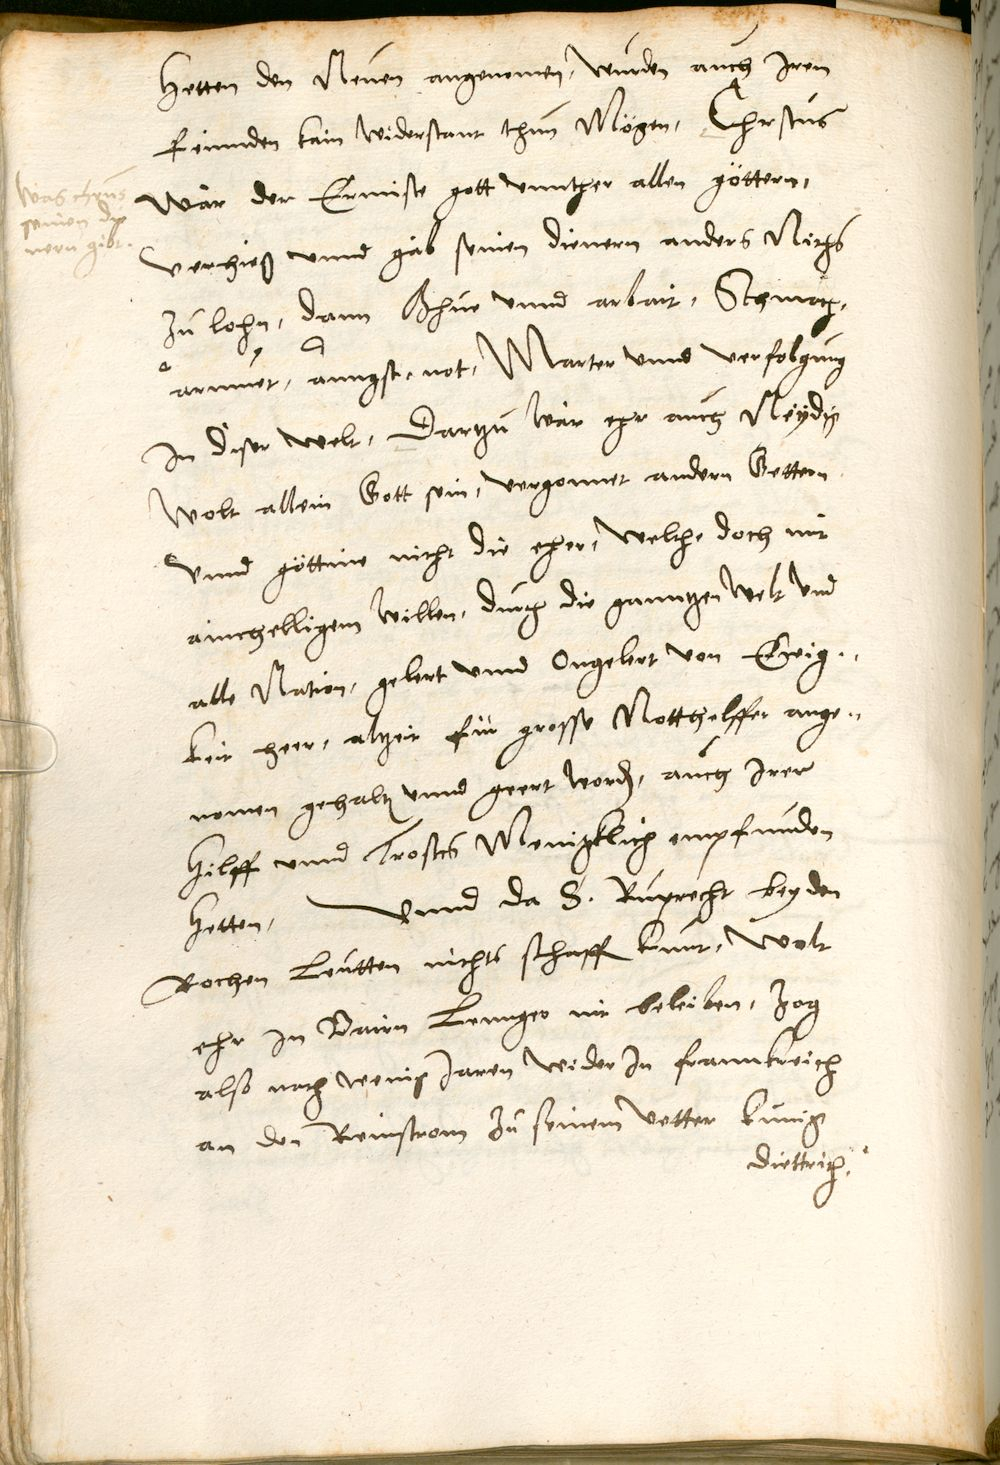 Hetten den Neuen angenomen, wurden auch Iren
feinnden kain widerstant thun Mögen, Christus
wär der Ermiste gott unnther allen göttern,
verhieß unnd gäb seinen dienern anders Nichs
zu lohn, dann Rhue unnd arbait, Schmach,
armuet, anngst, not, Marter unnd verfolgung
In diser welt, Dartzu wär ehr auch Neydig
wolt allein Gott sein, vergonnet andern Gettern
unnd göttine nicht die eher, welche doch mit
ainhelligem willen, durch die ganntzen welt und
alle Nation, gelert unnd Ongelert von Ewig-
keit heer, altzeit für grosse Notthelffer ange-
nomen gehaltn unnd geert wordn, auch Irer
Hilff unnd Trostes Menigklich empfunden
Hetten, Unnd da S. Ruprecht bey den
Rochen Leutten nichts schaffn kunt, wolt
ehr In Bairn Lennger nit beleiben, zog
also nach wenig Jaren wider In frannkreich
an den Reinstrom zu seinem vetter kunig
diettrich,
was
seinen die
nern gibt.